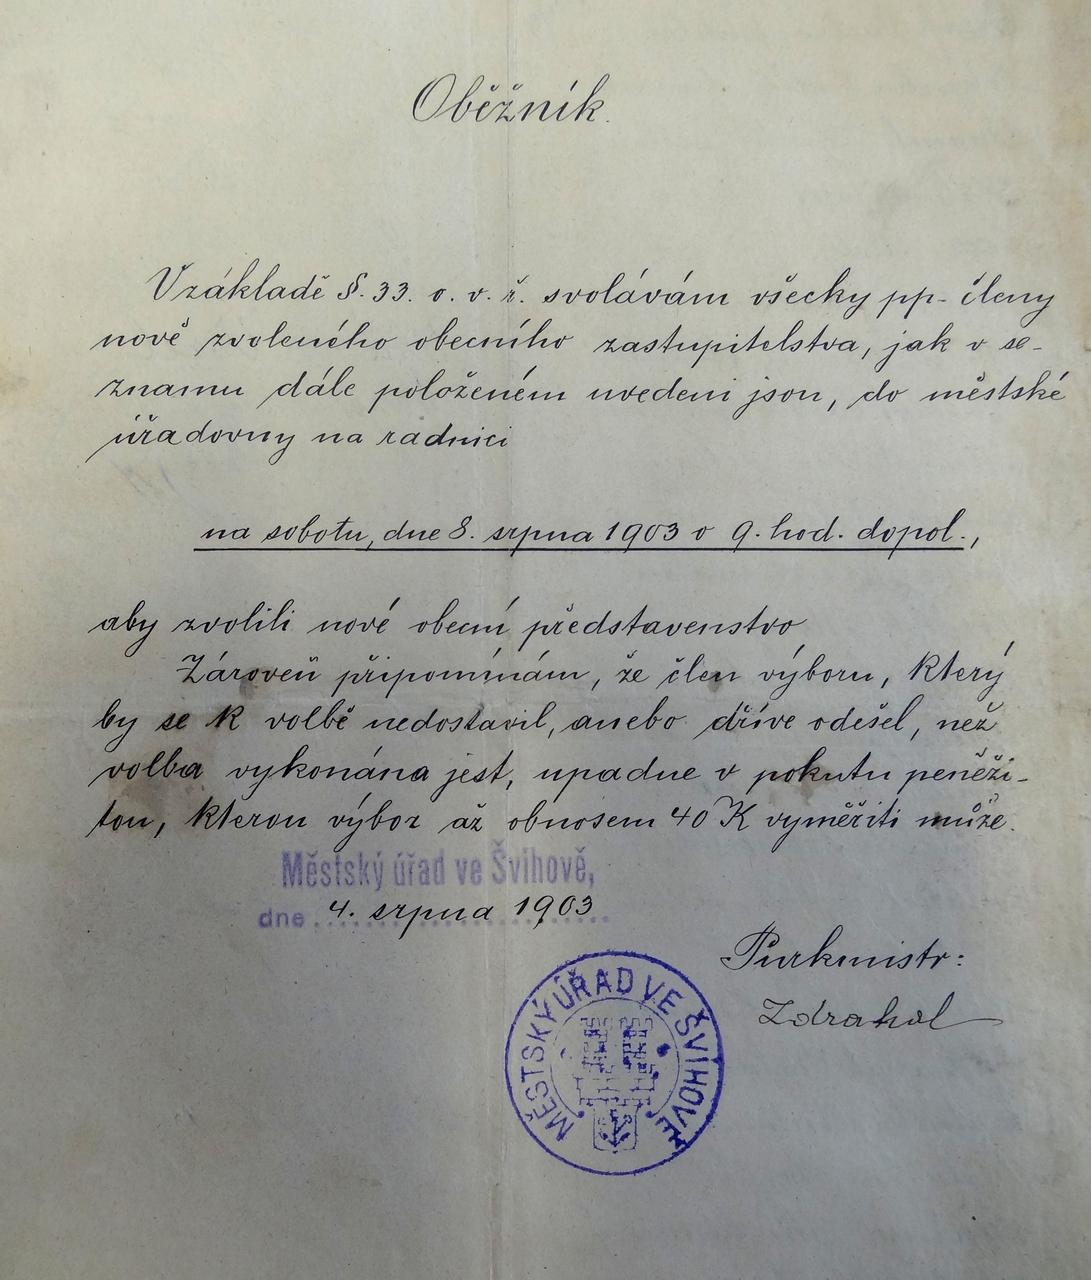 Oběžník.
Vzákladě §. 33. o. v. ř. svolávám všecky pp- členy
nově zvoleného obecního zastupitelstva, jak v se-
znamu dále položeném uvedeni jsou, do městské
úřadovny na radnici
na sobotu, dne 8. srpna 1903 o 9. hod. dopol.,
aby zvolili nové obecní představenstvo
Zároveň připomínám, že člen výboru, který
by se k volbě nedostavil, anebo dříve odešel, než
volba vykonána jest, upadne v pokutu peněži-
tou, kterou výbor až obnosem 40 K vyměřiti může.
Městský úřad ve Švihově,
dne 4. srpna 1903
Purkmistr:
Zdrahal
MĚSTSKÝ ÚŘAD VE ŠVIHOVĚ